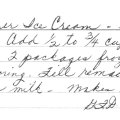 er Ice Cream -
Add ½ to ¾ cup
2 packages fro
ing. Fill rema
milk. Makes